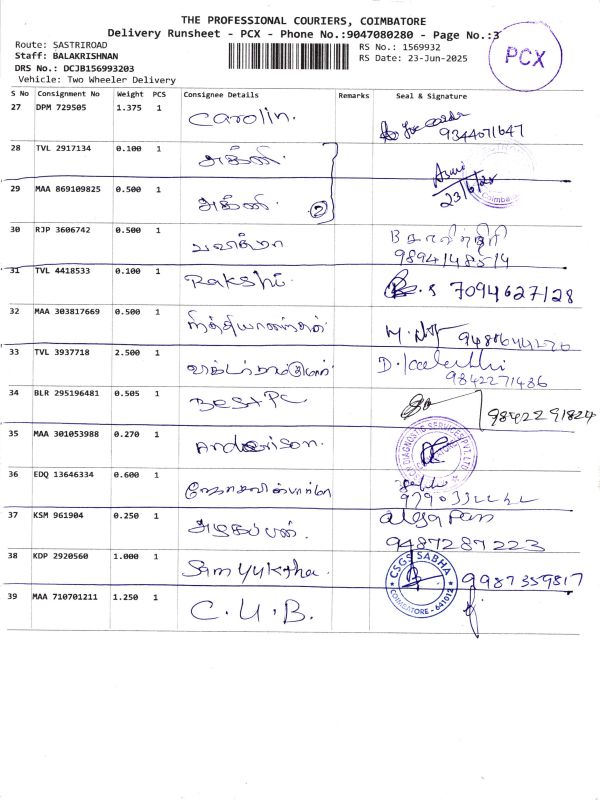 THE PROFESSIONAL COURIERS, COIMBATORE
Delivery Runsheet - PCX - Phone No.:9047080280 - Page No.:3
Route: SASTRIROAD
RS No.: 1569932
Staff: BALAKRISHNAN
RS Date: 23-Jun-2025
DRS No.: DCJB156993203
Vehicle: Two Wheeler Delivery
PCX
S No Consignment No Weight PCS Consignee Details Remarks Seal & Signature
27 DPM 729505 1.375 1 Carolin. 9344071647
28 TVL 2917134 0.100 1 அக்னி.
29 MAA 869109825 0.500 1 அக்னி. 2 23/6/25
30 RJP 3606742 0.500 1 9894148514
31 TVL 4418533 0.100 1 Rakshi. 7094627128
32 MAA 303817669 0.500 1 நித்தியானந்தன்
33 TVL 3937718 2.500 1 9842271486
34 BLR 295196481 0.505 1 Best PC 9842291824
35 MAA 301053988 0.270 1 Anderison.
36 EDQ 13646334 0.600 1
37 KSM 961904 0.250 1 அழகப்பன். 9487287223
38 KDP 2920560 1.000 1 Samyuktha. 9987359817
CSGS SABHA
COIMBATORE - 641012
39 MAA 710701211 1.250 1 C.U.B.